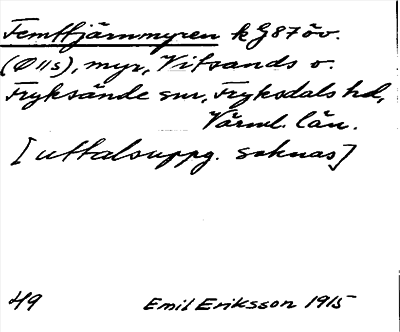 Femttjärnmyren k G87öv.
(Ø11s), myr, Vitsands o.
Fryksände snr, Fryksdals hd,
Värml. län.
[uttalsuppg. saknas]
49 Emil Eriksson 1915